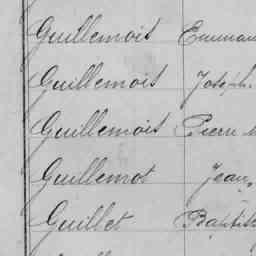 Guillemois Emman
Guillemois Joseph
Guillemois Pierre M
Guillemot Jean,
Guillet Baptist